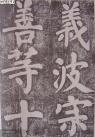 義波宗
善等十